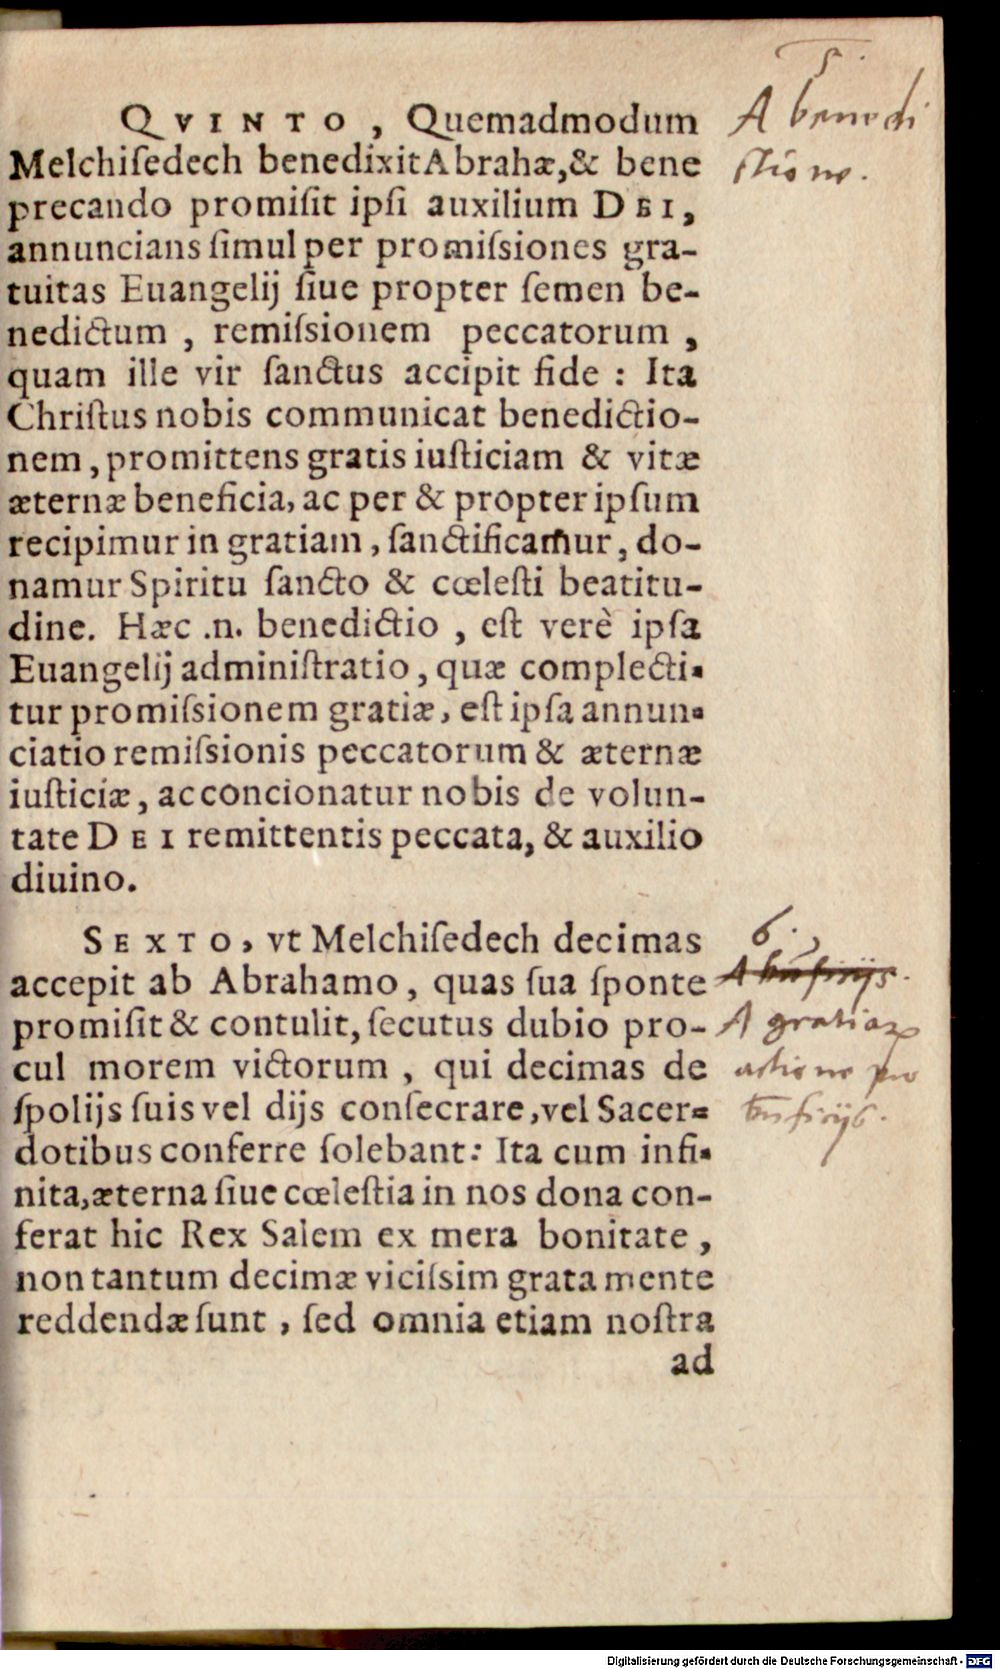 QVINTO, Quemadmodum
Melchiſedech benedixit Abrahæ, & bene
precando promiſit ipſi auxilium DEI,
annuncians ſimul per promiſsiones gra-
tuitas Euangelij ſiue propter ſemen be-
nedictum, remiſsionem peccatorum,
quam ille vir ſanctus accipit fide: Ita
Chriſtus nobis communicat benedictio-
nem, promittens gratis iuſticiam & vitæ
æternæ beneficia, ac per & propter ipſum
recipimur in gratiam, ſanctificamur, do-
namur Spiritu ſancto & cœleſti beatitu-
dine. Hæc .n. benedictio, eſt verè ipſa
Euangelij adminiſtratio, quæ complecti-
tur promiſsionem gratiæ, eſt ipſa annun-
ciatio remiſsionis peccatorum & æternæ
iuſticiæ, ac concionatur nobis de volun-
tate DEI remittentis peccata, & auxilio
diuino.
SEXTO, vt Melchiſedech decimas
accepit ab Abrahamo, quas ſua ſponte
promiſit & contulit, ſecutus dubio pro-
cul morem victorum, qui decimas de
ſpolijs ſuis vel dijs conſecrare, vel Sacer-
dotibus conferre ſolebant: Ita cum infi-
nita, æterna ſiue cœleſtia in nos dona con-
ferat hic Rex Salem ex mera bonitate,
non tantum decimæ viciſsim grata mente
reddendæ ſunt, ſed omnia etiam noſtra
ad
5.
A benedi
ctione.
6.
A gratiar
actione pro
Digitalisierung gefördert durch die Deutsche Forschungsgemeinschaft - DFG